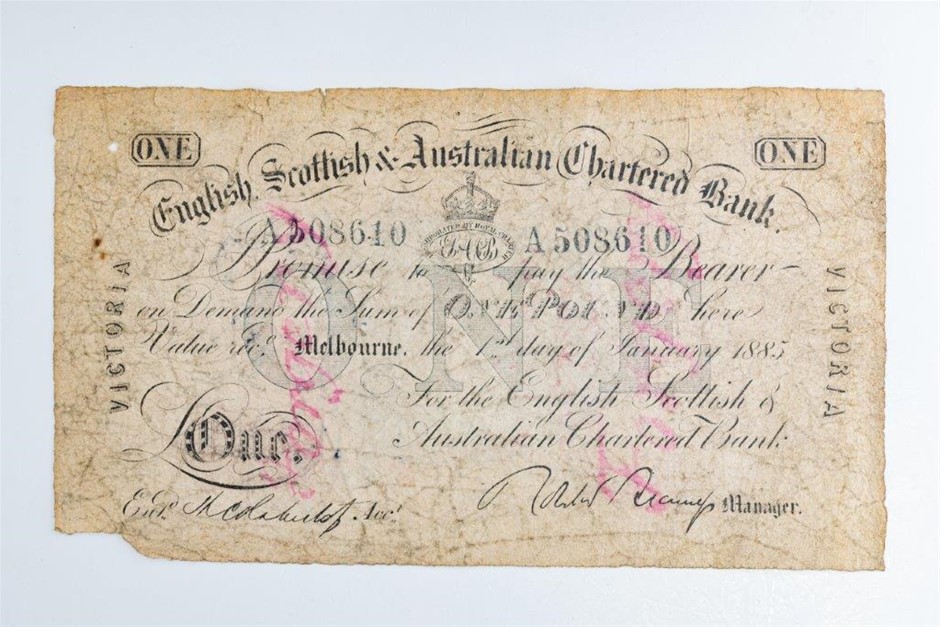 ONE ONE
English, Scottish & Australian Chartered Bank.
INCORPORATED BY ROYAL CHARTER
A 508610 A 508610
Promise to pay the Bearer
on Demand the Sum of ONE POUND here
Value recd. Melbourne. the 1st day of January 1885
ONE
VICTORIA
VICTORIA
For the English Scottish &
Australian Chartered Bank
£One.
Entd. Acct. Manager.